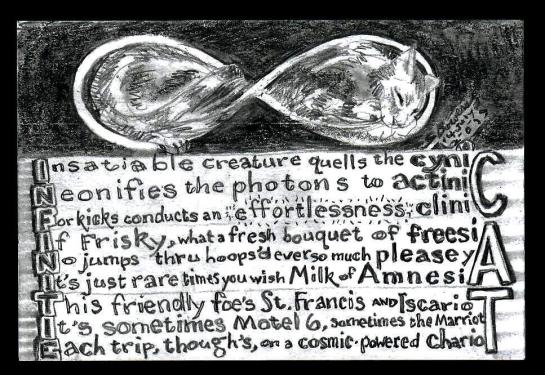 Insatiable creature quells the cyni
Neonifies the photons to actini C
For kicks conducts an effortlessness clini
If Frisky, what a fresh bouquet of freesi
No jumps thru hoops'd ever so much please y A
It's just rare times you wish Milk of Amnesi
This friendly foe's St. Francis AND Iscario
It's sometimes Motel 6, sometimes the Marriot T
Each trip, though's, on a cosmic-powered chario